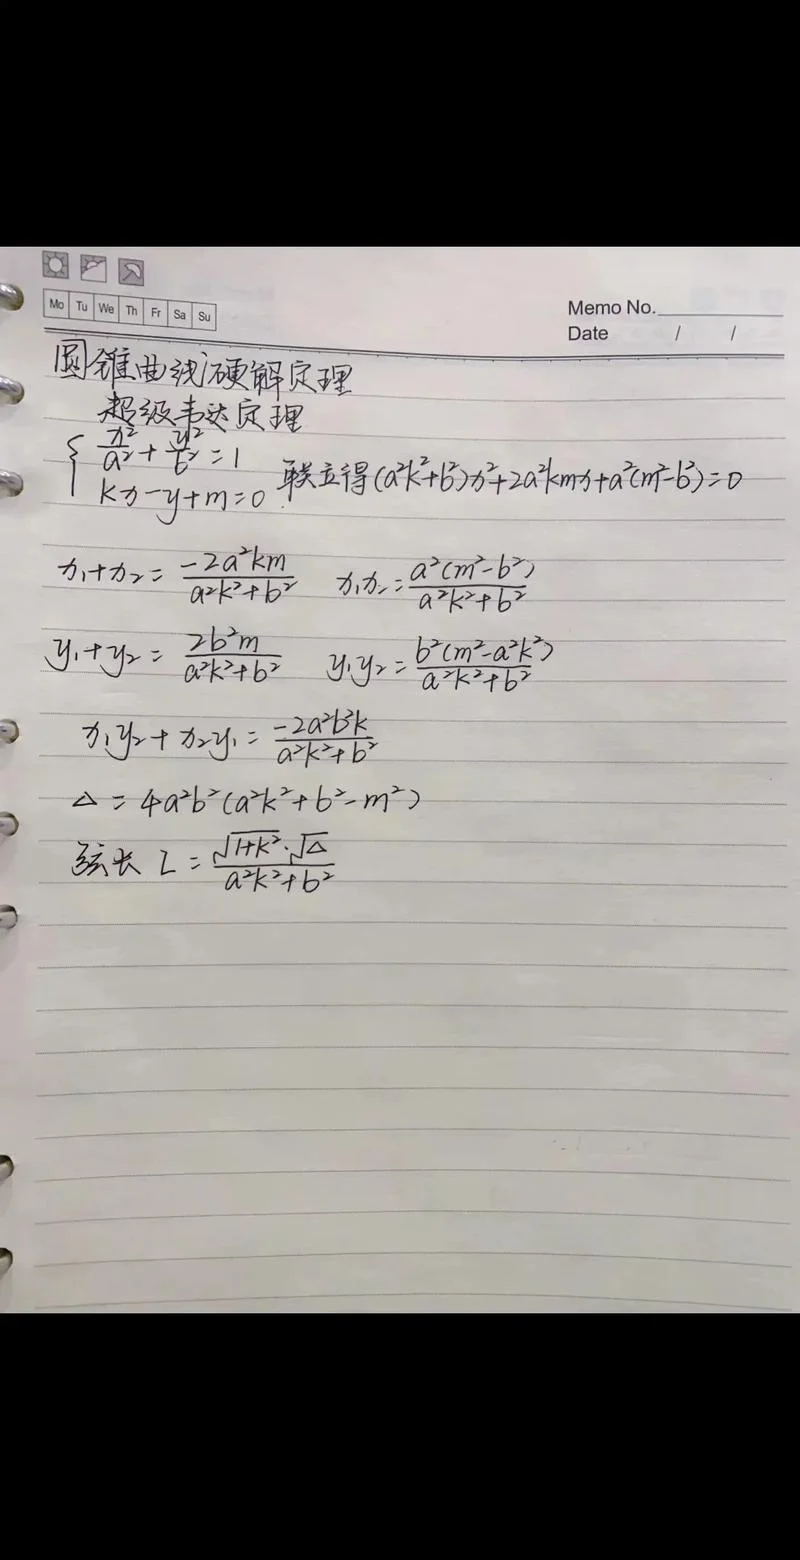 Mo Tu We Th Fr Sa Su
Memo No.
Date / /
圆锥曲线硬解定理
超级韦达定理
{ x²/a² + y²/b² = 1
kx-y+m=0
联立得(a²k²+b²)x²+2a²kmx+a²(m²-b²)=0
x₁+x₂ = -2a²km/(a²k²+b²) x₁x₂ = a²(m²-b²)/(a²k²+b²)
y₁+y₂ = 2b²m/(a²k²+b²) y₁y₂ = b²(m²-a²k²)/(a²k²+b²)
x₁y₂+x₂y₁ = -2a²b²k/(a²k²+b²)
△ = 4a²b²(a²k²+b²-m²)
弦长 L = √(1+k²)·√△/(a²k²+b²)